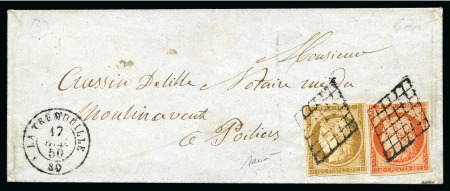 Monsieur
Cressin Delille Notaire rue du
Moulin à vent
à Poitiers
LA TREMOUILLE
17
50
80